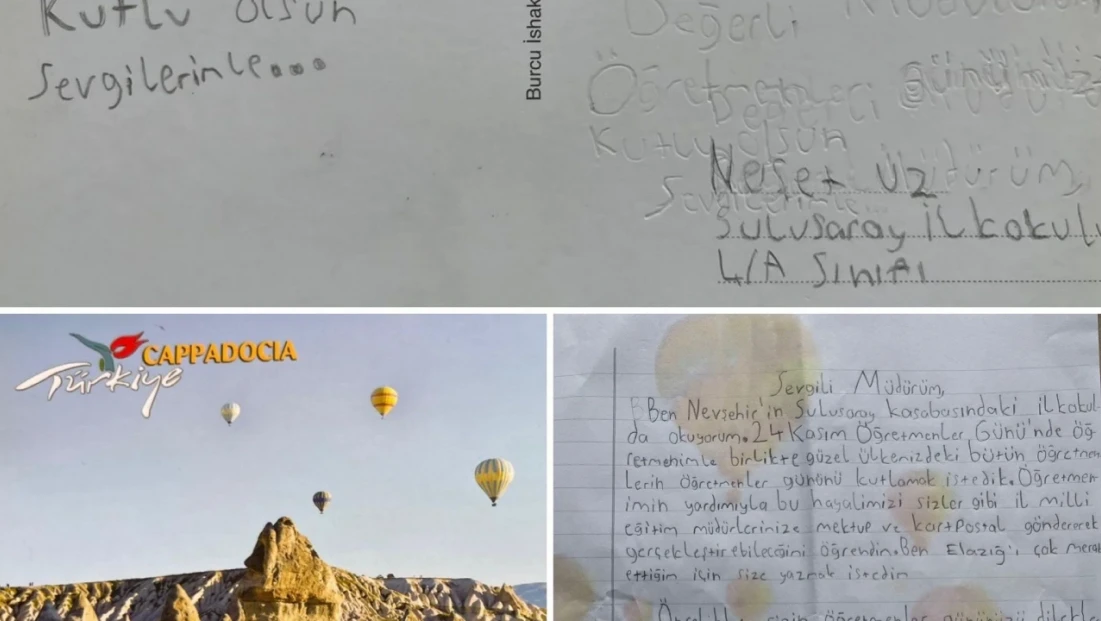 Kutlu olsun
Sevgilerinle...
Burcu İshak
Değerli
Öğretmenleri gününüz
Kutlu olsun
Neşet Uz
Sulusaray İlkokulu
4/A Sınıfı
CAPPADOCIA
Türkiye
Sevgili Müdürüm,
Ben Nevşehir'in Sulusaray kasabasındaki ilkokul-
da okuyorum. 24 Kasım Öğretmenler Günü'nde öğ-
retmenimle birlikte güzel ülkenizdeki bütün öğretmen
lerin öğretmenler gününü kutlamak istedik. Öğretmen
imin yardımıyla bu hayalimizi sizler gibi il milli
eğitim müdürlerinize mektup ve kartpostal göndererek
gerçekleştirebileceğini öğrendim. Ben Elazığ'ı çok mera
ettiğim için size yazmak istedim